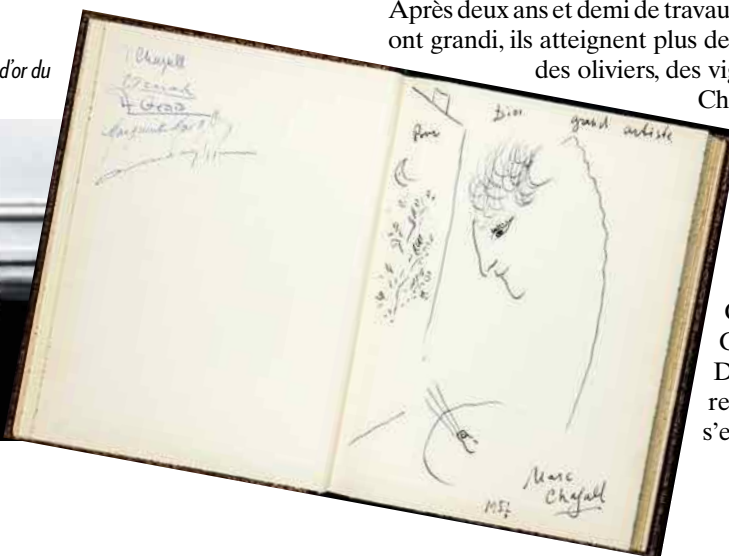 d'or du
Après deux ans et demi de travau
ont grandi, ils atteignent plus de
des oliviers, des vig
Ch
C
C
D
re
s'e
Chagall
Pour Dior grand artiste
Marc
Chagall
1957